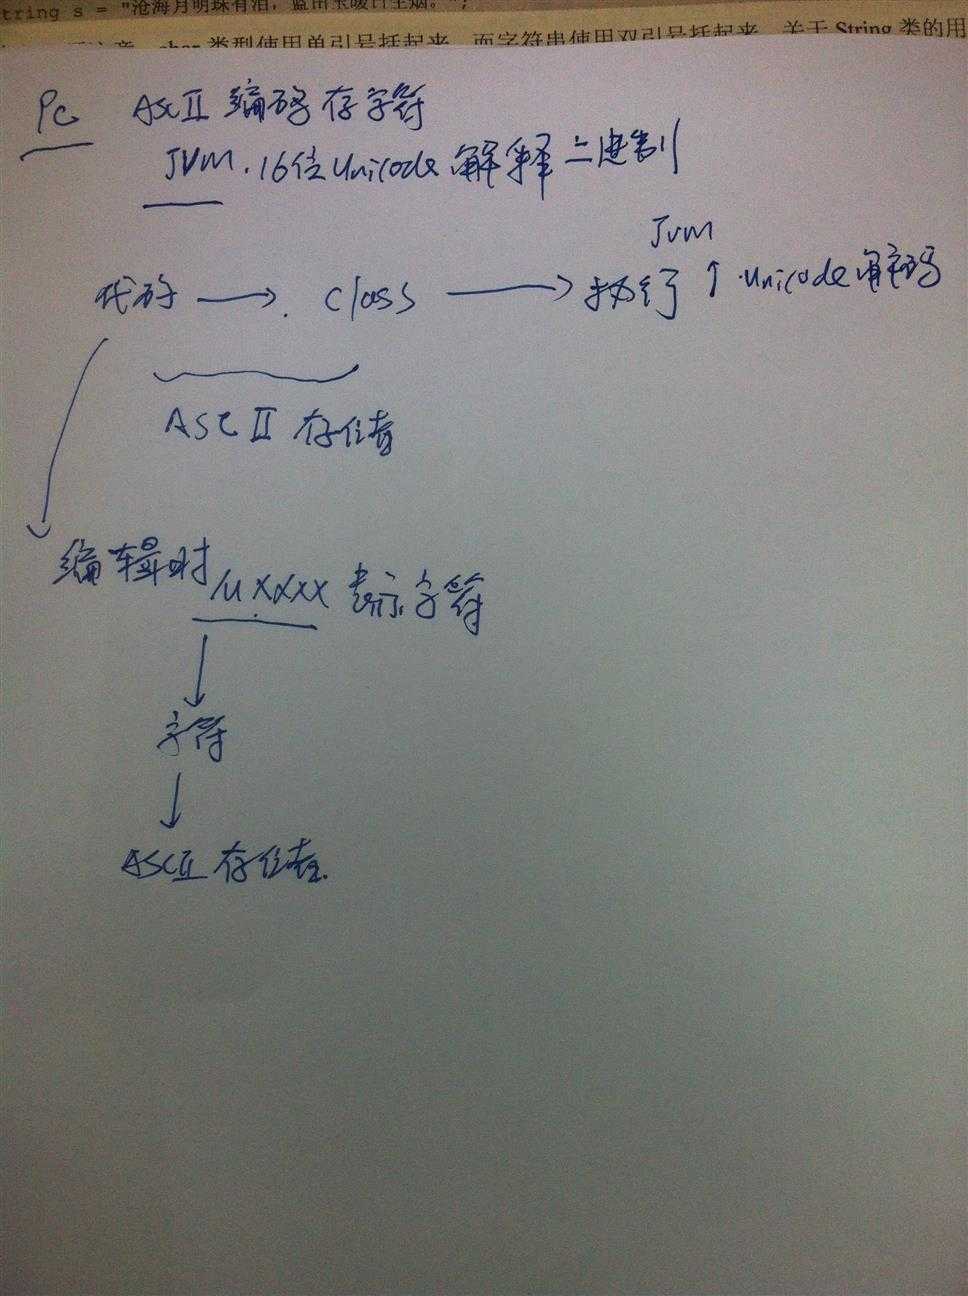 tring s = "沧海月明珠有泪，蓝田玉暖日生烟。";
char 类型使用单引号括起来，而字符串使用双引号括起来。关于 String 类的用
PC ASCII 编码存字符
JVM. 16位Unicode 解释二进制
JVM
代码 → class → 执行 ↑ Unicode 解码
ASCII 存储着
编辑时 \uxxxx 表示字符
字符
ASCII 存储着.